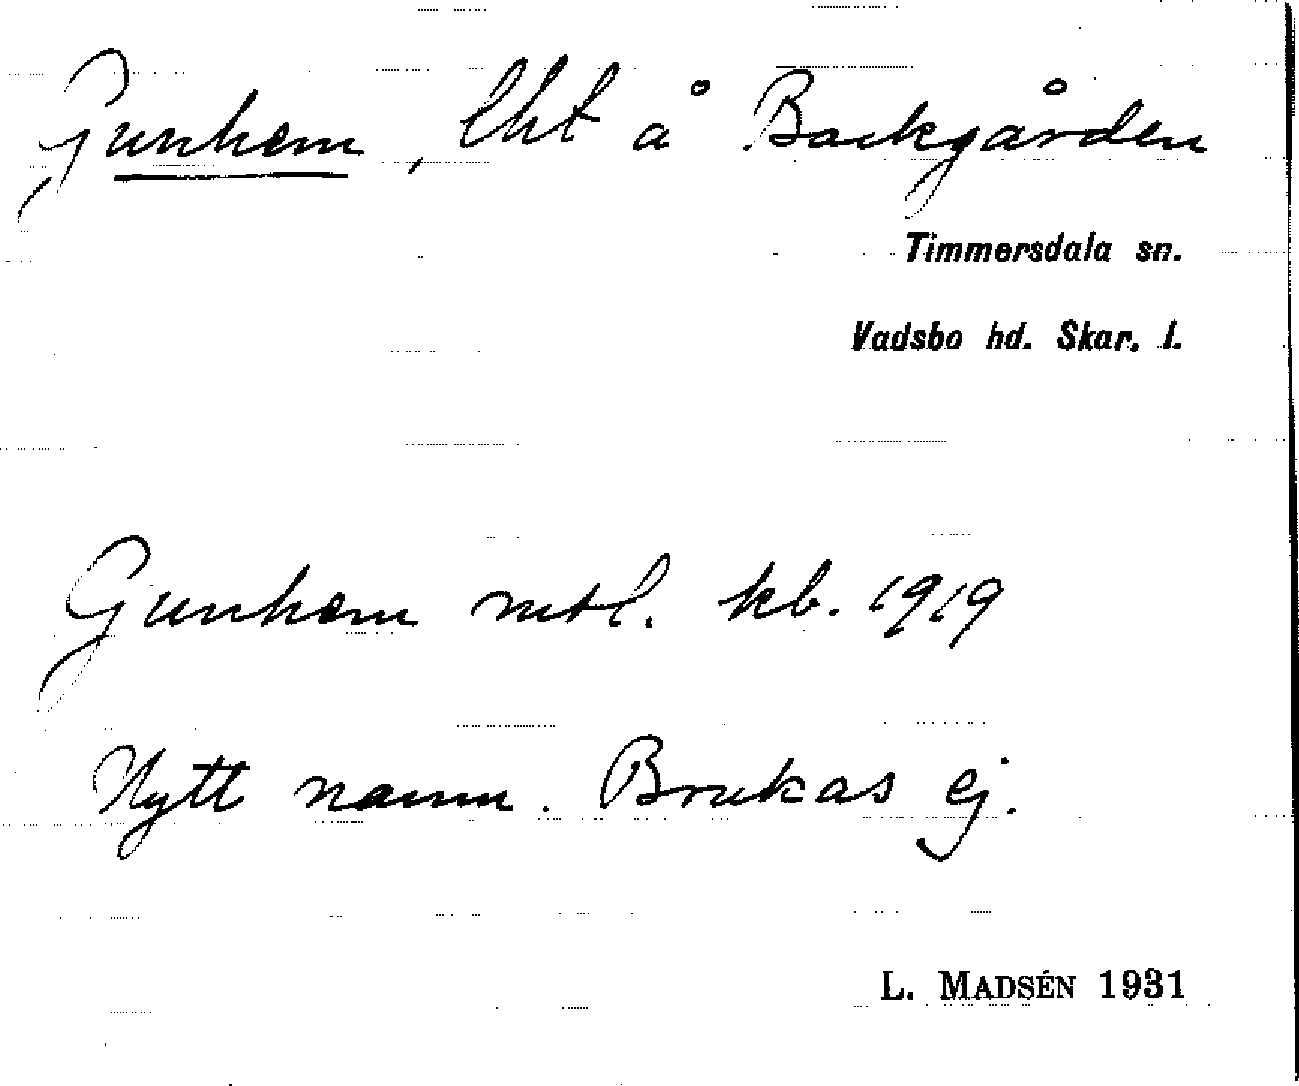 Gunhem, lht å Backgården
Timmersdala sn.
Vadsbo hd. Skar. l.
Gunhem mtl. kb. 1919
Nytt namn. Brukas ej.
L. MADSÉN 1931